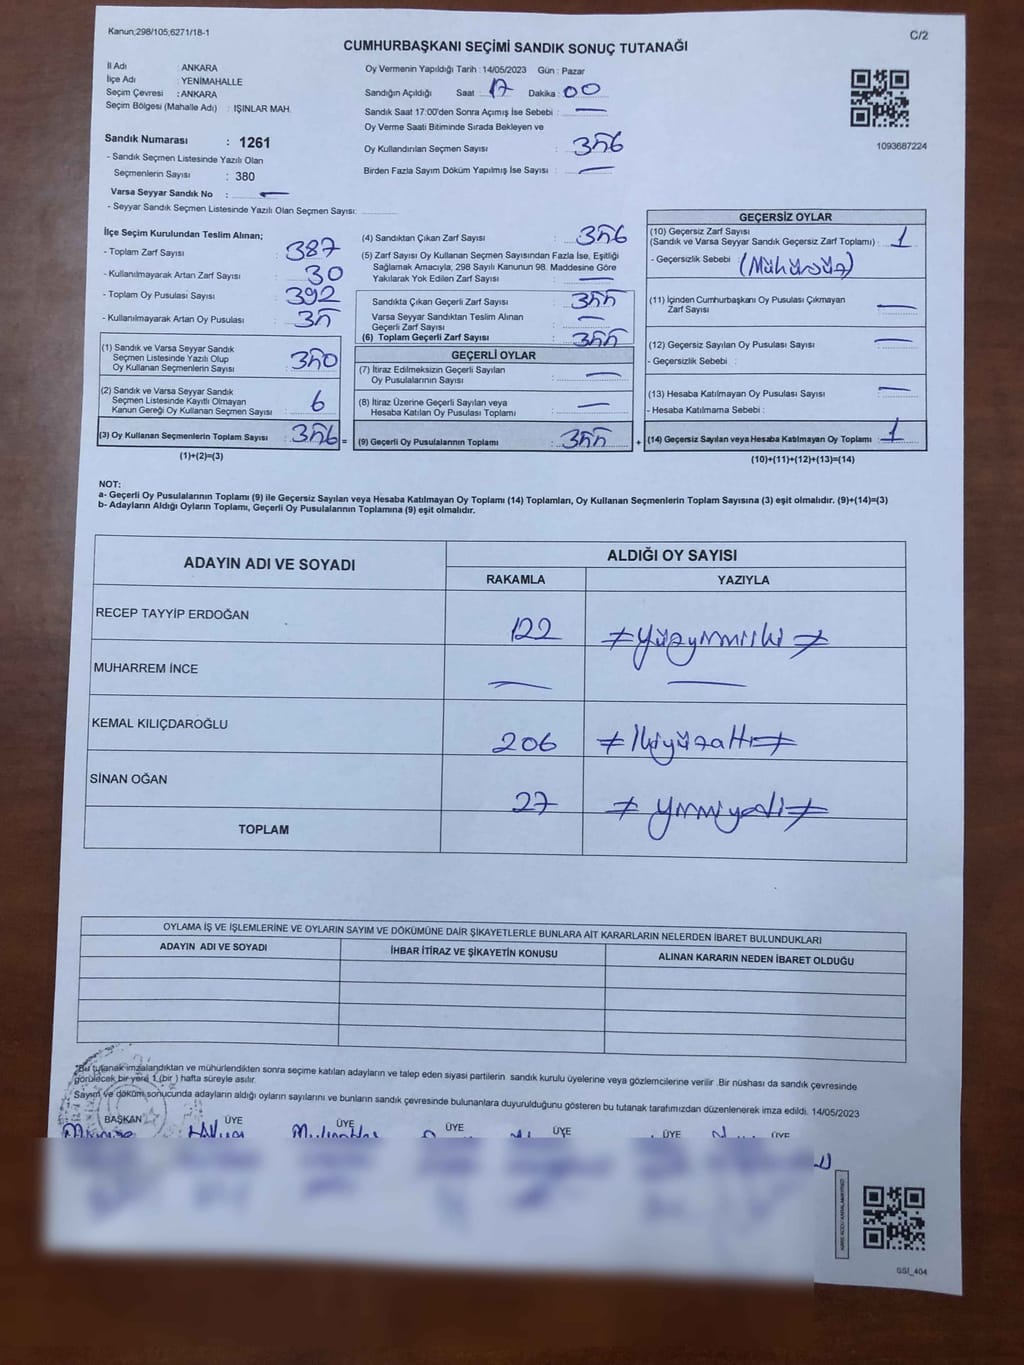 Kanun;298/105;6271/18-1
C/2
CUMHURBAŞKANI SEÇİMİ SANDIK SONUÇ TUTANAĞI
İl Adı : ANKARA
İlçe Adı : YENİMAHALLE
Seçim Çevresi : ANKARA
Seçim Bölgesi (Mahalle Adı) : IŞINLAR MAH.
Sandık Numarası : 1261
- Sandık Seçmen Listesinde Yazılı Olan
Seçmenlerin Sayısı : 380
Varsa Seyyar Sandık No : —
- Seyyar Sandık Seçmen Listesinde Yazılı Olan Seçmen Sayısı:
Oy Vermenin Yapıldığı Tarih : 14/05/2023 Gün : Pazar
Sandığın Açıldığı Saat : 17 Dakika : 00
Sandık Saat 17:00'den Sonra Açımış İse Sebebi : —
Oy Verme Saati Bitiminde Sırada Bekleyen ve
Oy Kullandırılan Seçmen Sayısı : 356
Birden Fazla Sayım Döküm Yapılmış İse Sayısı : —
1093687224
İlçe Seçim Kurulundan Teslim Alınan;
- Toplam Zarf Sayısı : 387
- Kullanılmayarak Artan Zarf Sayısı : 30
- Toplam Oy Pusulası Sayısı : 392
- Kullanılmayarak Artan Oy Pusulası : 35
(1) Sandık ve Varsa Seyyar Sandık
Seçmen Listesinde Yazılı Olup
Oy Kullanan Seçmenlerin Sayısı : 350
(2) Sandık ve Varsa Seyyar Sandık
Seçmen Listesinde Kayıtlı Olmayan
Kanun Gereği Oy Kullanan Seçmen Sayısı : 6
(3) Oy Kullanan Seçmenlerin Toplam Sayısı : 356 =
(1)+(2)=(3)
(4) Sandıktan Çıkan Zarf Sayısı : 356
(5) Zarf Sayısı Oy Kullanan Seçmen Sayısından Fazla İse, Eşitliği
Sağlamak Amacıyla, 298 Sayılı Kanunun 98. Maddesine Göre
Yakılarak Yok Edilen Zarf Sayısı : —
Sandıkta Çıkan Geçerli Zarf Sayısı : 355
Varsa Seyyar Sandıktan Teslim Alınan
Geçerli Zarf Sayısı : —
(6) Toplam Geçerli Zarf Sayısı : 355
GEÇERLİ OYLAR
(7) İtiraz Edilmeksizin Geçerli Sayılan
Oy Pusulalarının Sayısı : —
(8) İtiraz Üzerine Geçerli Sayılan veya
Hesaba Katılan Oy Pusulası Toplamı : —
(9) Geçerli Oy Pusulalarının Toplamı : 355 +
GEÇERSİZ OYLAR
(10) Geçersiz Zarf Sayısı
(Sandık ve Varsa Seyyar Sandık Geçersiz Zarf Toplamı) : 1
- Geçersizlik Sebebi : (Mühürsüz)
(11) İçinden Cumhurbaşkanı Oy Pusulası Çıkmayan
Zarf Sayısı : —
(12) Geçersiz Sayılan Oy Pusulası Sayısı : —
- Geçersizlik Sebebi :
(13) Hesaba Katılmayan Oy Pusulası Sayısı : —
- Hesaba Katılmama Sebebi :
(14) Geçersiz Sayılan veya Hesaba Katılmayan Oy Toplamı : 1
(10)+(11)+(12)+(13)=(14)
NOT:
a- Geçerli Oy Pusulalarının Toplamı (9) ile Geçersiz Sayılan veya Hesaba Katılmayan Oy Toplamı (14) Toplamları, Oy Kullanan Seçmenlerin Toplam Sayısına (3) eşit olmalıdır. (9)+(14)=(3)
b- Adayların Aldığı Oyların Toplamı, Geçerli Oy Pusulalarının Toplamına (9) eşit olmalıdır.
ADAYIN ADI VE SOYADI ALDIĞI OY SAYISI
RAKAMLA YAZIYLA
RECEP TAYYİP ERDOĞAN 122 ≠Yüzyirmiiki≠
MUHARREM İNCE — —
KEMAL KILIÇDAROĞLU 206 ≠İkiyüzaltı≠
SİNAN OĞAN 27 ≠Yirmiyedi≠
TOPLAM
OYLAMA İŞ VE İŞLEMLERİNE VE OYLARIN SAYIM VE DÖKÜMÜNE DAİR ŞİKAYETLERLE BUNLARA AİT KARARLARIN NELERDEN İBARET BULUNDUKLARI
ADAYIN ADI VE SOYADI İHBAR İTİRAZ VE ŞİKAYETİN KONUSU ALINAN KARARIN NEDEN İBARET OLDUĞU
*Bu tutanak imzalandıktan ve mühürlendikten sonra seçime katılan adayların ve talep eden siyasi partilerin sandık kurulu üyelerine veya gözlemcilerine verilir .Bir nüshası da sandık çevresinde
görülecek bir yere 1 (bir ) hafta süreyle asılır.
Sayım ve döküm sonucunda adayların aldığı oyların sayılarını ve bunların sandık çevresinde bulunanlara duyurulduğunu gösteren bu tutanak tarafımızdan düzenlenerek imza edildi. 14/05/2023
BAŞKAN ÜYE ÜYE ÜYE ÜYE ÜYE ÜYE
GSI_404